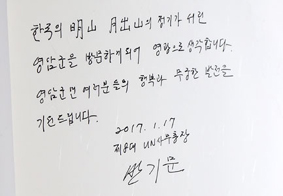 한국의 明山 月出山의 정기가 서린
영암군을 방문하게되어 영광으로 생각합니다.
영암군민 여러분들의 행복과 무궁한 발전을
기원드립니다.
2017. 1. 17
제8대 UN사무총장
반기문